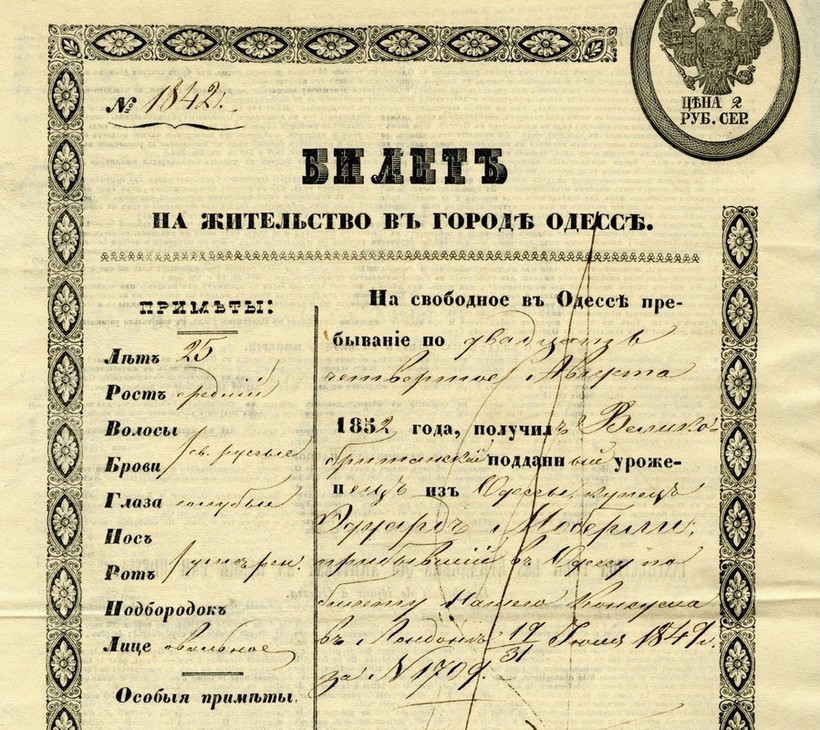 № 1842.
ЦѢНА 2
РУБ. СЕР.
БИЛЕТЪ
НА ЖИТЕЛЬСТВО ВЪ ГОРОДѢ ОДЕССѢ.
ПРИМѢТЫ:
Лѣтъ 25
Ростъ средній
Волосы
св. русые
Брови
Глаза голубые
Носъ
умѣрен.
Ротъ
Подбородокъ
Лице овальное
Особыя примѣты.
На свободное въ Одессѣ пре-
бываніе по двадцать
четвертое Августа
1852 года, получилъ Велико-
британскій подданный уроже-
нецъ изъ Одессы, купецъ
Эдуардъ Моберли,
прибывшій въ Одессу по
билету Нашего Консула
въ Лондонѣ 19/31 Іюля 1849 г.
за № 1709.